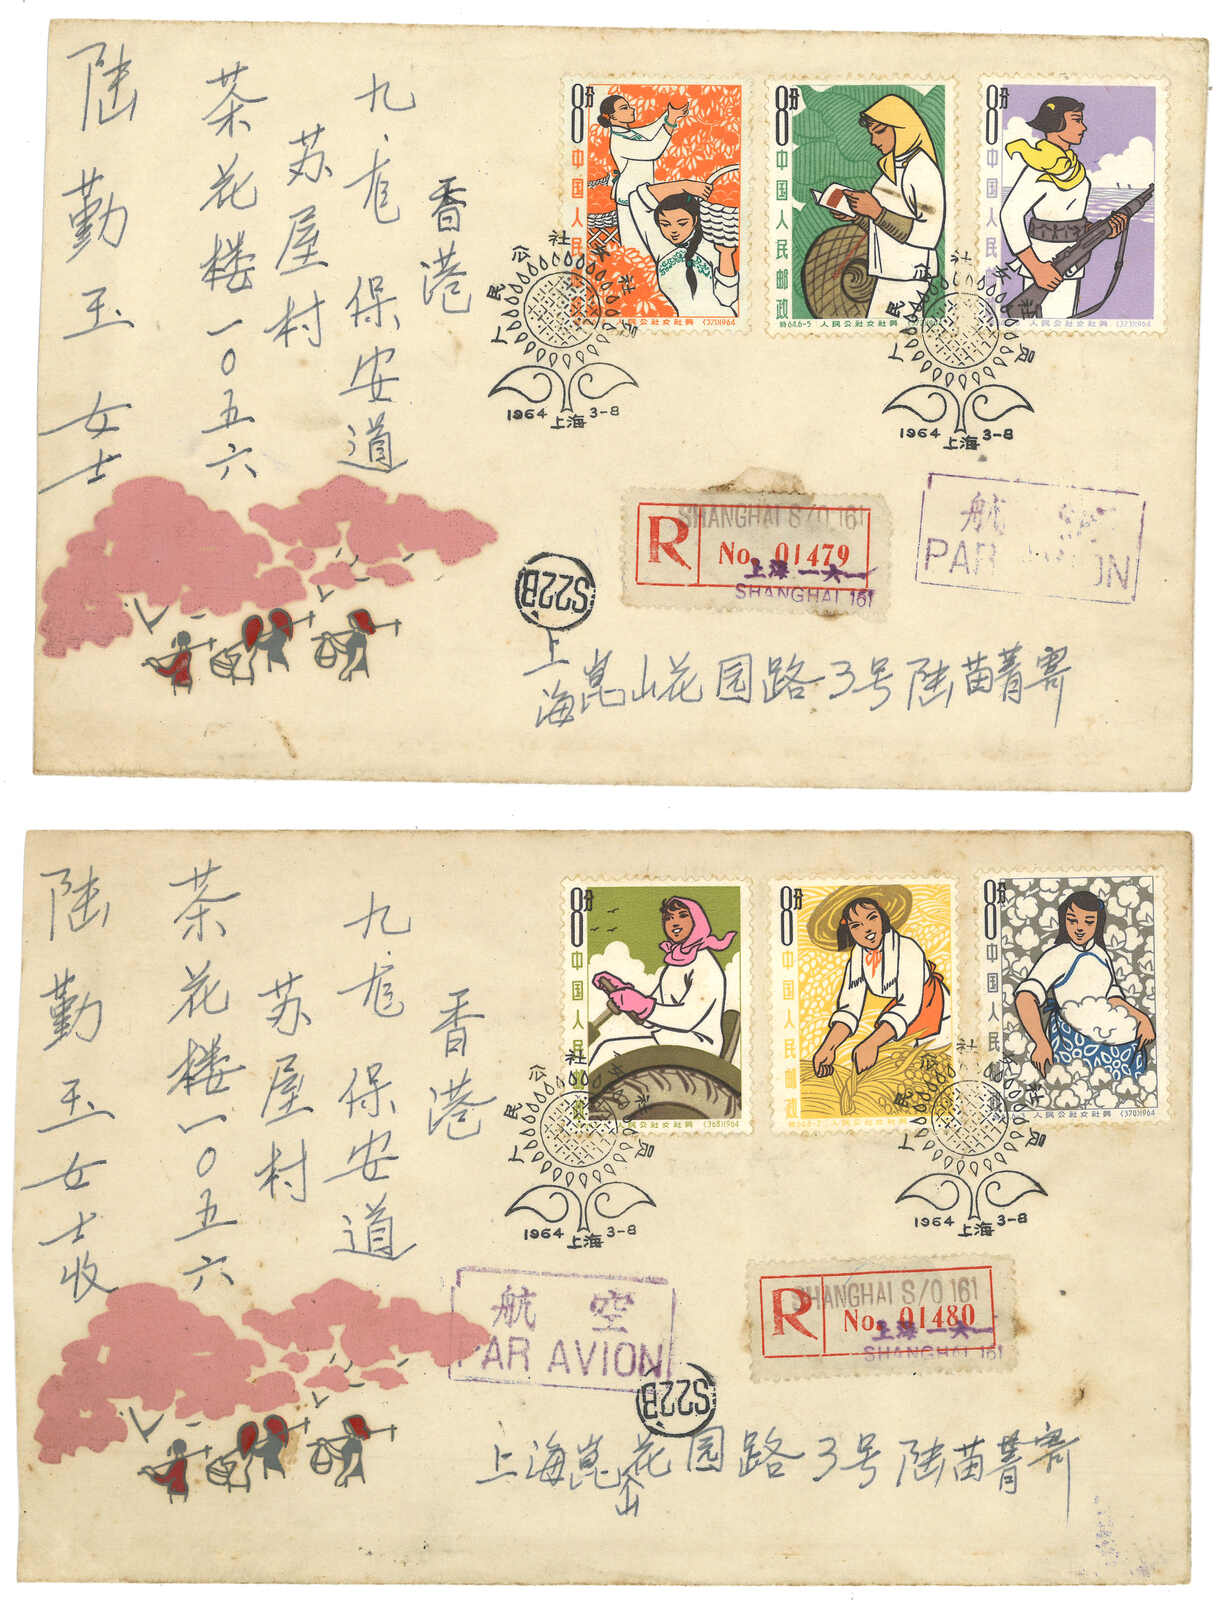 香港
九龙保安道
苏屋村
茶花楼一〇五六
陆勤玉女士
8分
中国人民邮政
(371)1964
8分
中国人民邮政
特64.6-5 人民公社女社员
8分
中国人民
(373)1964
人民公社女社员
1964 上海 3-8
人民公社女社员
1964 上海 3-8
R
SHANGHAI S/O 161
No. 01479
上海一六一
SHANGHAI 161
航
PAR AVION
S22B
上海嵩山花园路3号陆苗菁寄
香港
九龙保安道
苏屋村
茶花楼一〇五六
陆勤玉女士收
8分
中国人民邮政
人民公社女社员 (368)1964
8分
中国人民邮政
8分
中国人民
人民公社女社员 (370)1964
人民公社女社员
1964 上海 3-8
人民公社女社员
1964 上海 3-8
航空
PAR AVION
R
SHANGHAI S/O 161
No. 01480
上海一六一
SHANGHAI 161
S22B
上海嵩山花园路3号陆苗菁寄